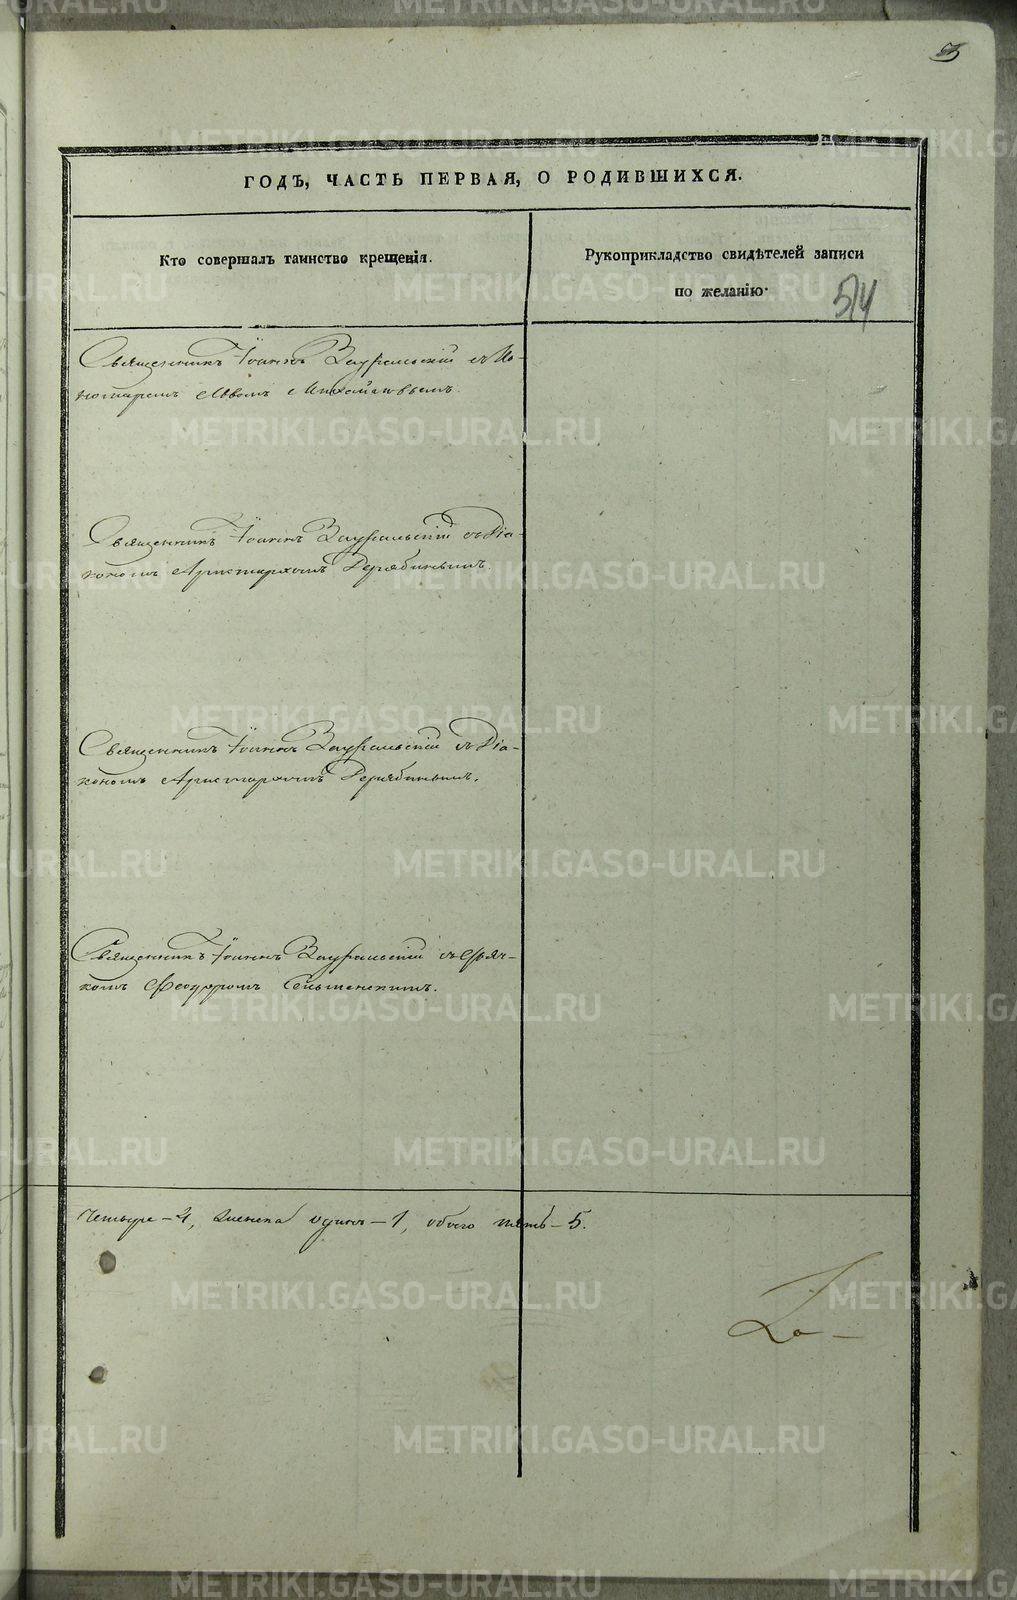 3
ГОДЪ, ЧАСТЬ ПЕРВАЯ, О РОДИВШИХСЯ.
Кто совершалъ таинство крещенія.
Рукоприкладство свидѣтелей записи
по желанію·
514
Священникъ Іоаннъ Зауральскій съ По-
номаремъ Львомъ Михайловымъ.
Священникъ Іоаннъ Зауральскій съ Діа-
кономъ Аристархомъ Дерябинымъ.
Священникъ Іоаннъ Зауральскій съ Діа-
кономъ Аристархомъ Дерябинымъ.
Священникъ Іоаннъ Зауральскій съ Дьяч-
комъ Феодоромъ
четыре – 4, женска одинъ – 1, обоего пять – 5.
METRIKI.GASO-URAL.RU